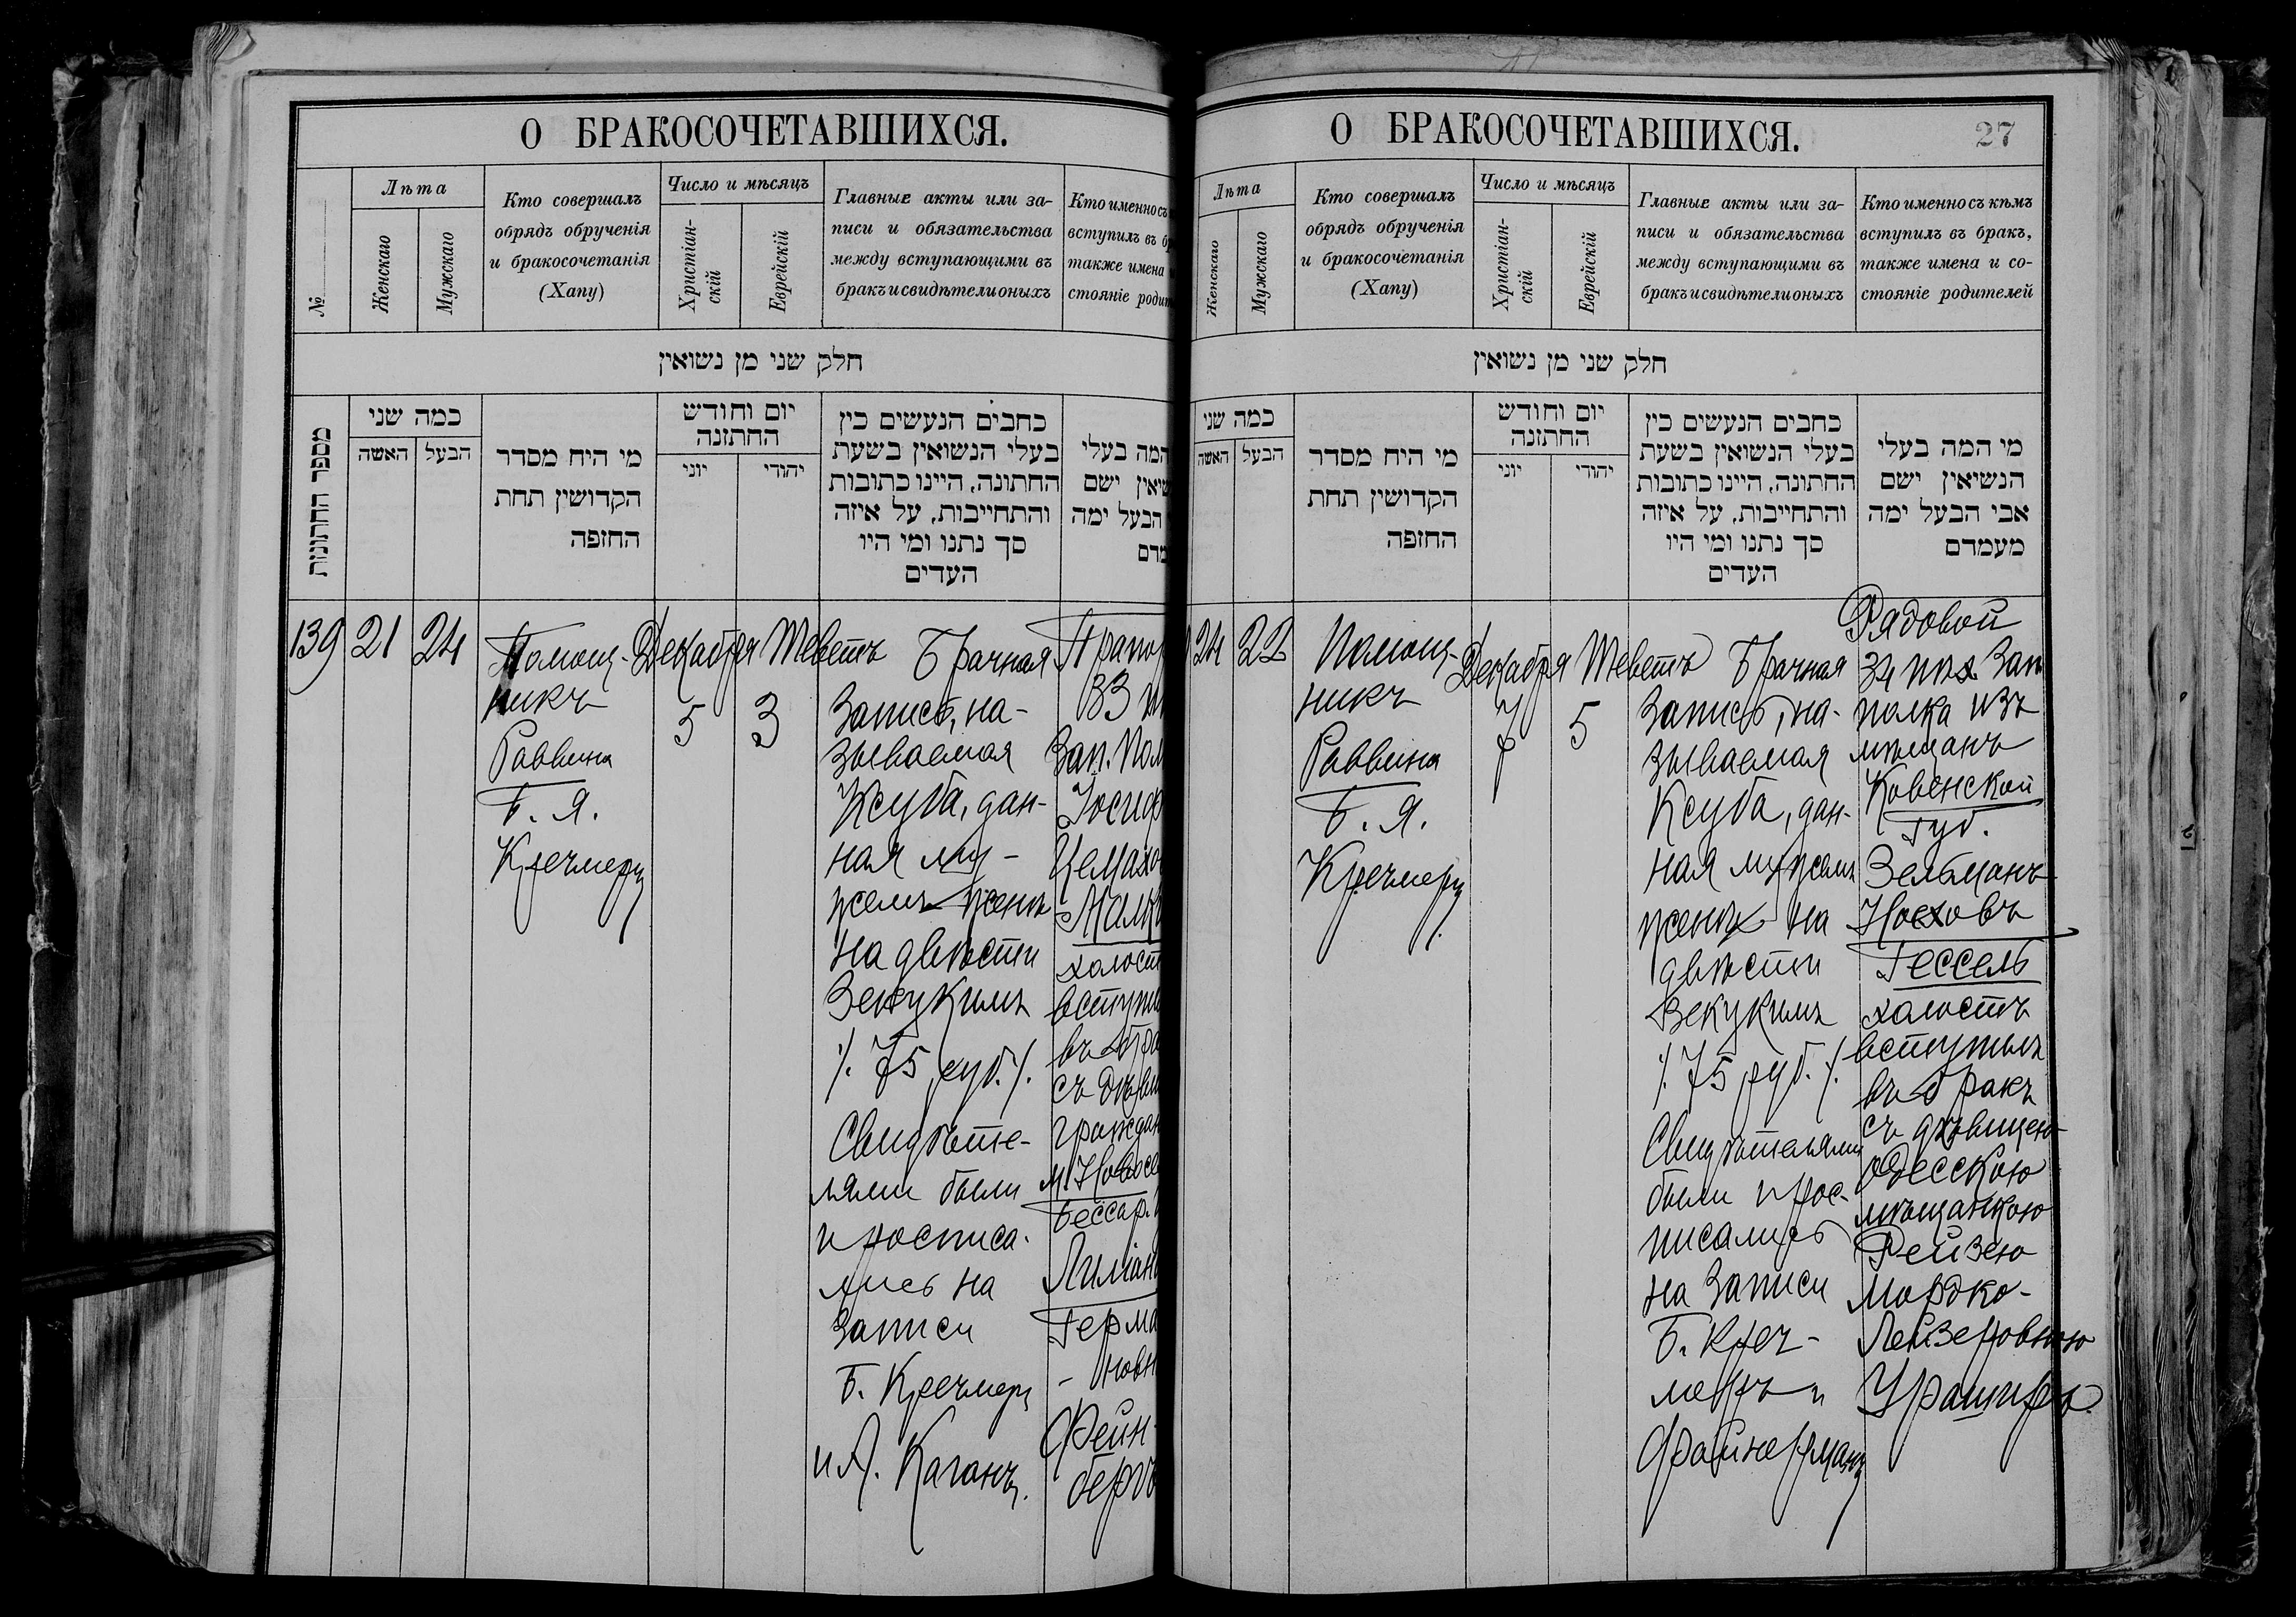 О БРАКОСОЧЕТАВШИХСЯ.
№
Лѣта
Женскаго
Мужскаго
Кто совершалъ
обрядъ обрученія
и бракосочетанія
(Хапу)
Число и мѣсяцъ
Христіан-
скій
Еврейскій
Главные акты или за-
писи и обязательства
между вступающими въ
бракъ и свидѣтели оныхъ
Кто именно съ
вступилъ въ б
также имена
стояніе роди
חלק שני מן נשואין
מספר החתונות
כמה שני
האשה
הבעל
מי היח מסדר
הקדושין תחת
החזפה
יום וחודש
החתזנה
יוני
יהודי
כחבים הנעשים כין
בעלי הנשואין בשעת
החתונה, היינו כתובות
והתחייבות, על איזה
סך נתנו ומי היו
העדים
המה בעלי
שיאין ישם
הבעל ימה
מדם
139
21
24
Помощ-
никъ
Раввина
Б. Я.
Кречмеръ
Декабря
5
Теветъ
3
Брачная
запись, на-
зываемая
Ксуба, дан-
ная му-
жемъ женѣ
на двѣсти
Зекукимъ
/. 75 руб. /.
Свидѣте-
лями были
и росписа-
лись на
записи
Б. Кречмеръ
и А. Каганъ.
Прапор
33 п
Зап. Пол
Іосиф
Цемахо
Малк
холост
вступи
въ бра
съ дѣви
граждан
м. Новосе
Бессар.
Лиміан
Герма
- новн
Фейн-
бергъ
О БРАКОСОЧЕТАВШИХСЯ.
27
Лѣта
Женскаго
Мужскаго
Кто совершалъ
обрядъ обрученія
и бракосочетанія
(Хапу)
Число и мѣсяцъ
Христіан-
скій
Еврейскій
Главные акты или за-
писи и обязательства
между вступающими въ
бракъ и свидѣтели оныхъ
Кто именно съ кѣмъ
вступилъ въ бракъ,
также имена и со-
стояніе родителей
חלק שני מן נשואין
כמה שני
האשה
הבעל
מי היח מסדר
הקדושין תחת
החזפה
יום וחודש
החתזנה
יוני
יהודי
כחבים הנעשים כין
בעלי הנשואין בשעת
החתונה, היינו כתובות
והתחייבות, על איזה
סך נתנו ומי היו
העדים
מי המה בעלי
הנשיאין ישם
אבי הבעל ימה
מעמדם
24
22
Помощ-
никъ
Раввина
Б. Я.
Кречмеръ
Декабря
7
Теветъ
5
Брачная
запись, на-
зываемая
Ксуба, дан-
ная мужемъ
женѣ на
двѣсти
Зекукимъ
/. 75 руб. /.
Свидѣтелями
были и рос-
писались
на записи
Б. Креч-
меръ и
Файнерманъ
Рядовой
34 пѣх. Зап
полка изъ
мѣщанъ
Ковенской
Губ.
Зельманъ
Ноеховъ
Гессель
холостъ
вступилъ
въ бракъ
съ дѣвицею
Одесскою
мѣщанкою
Рейзею
Мордко-
Лейзеровною